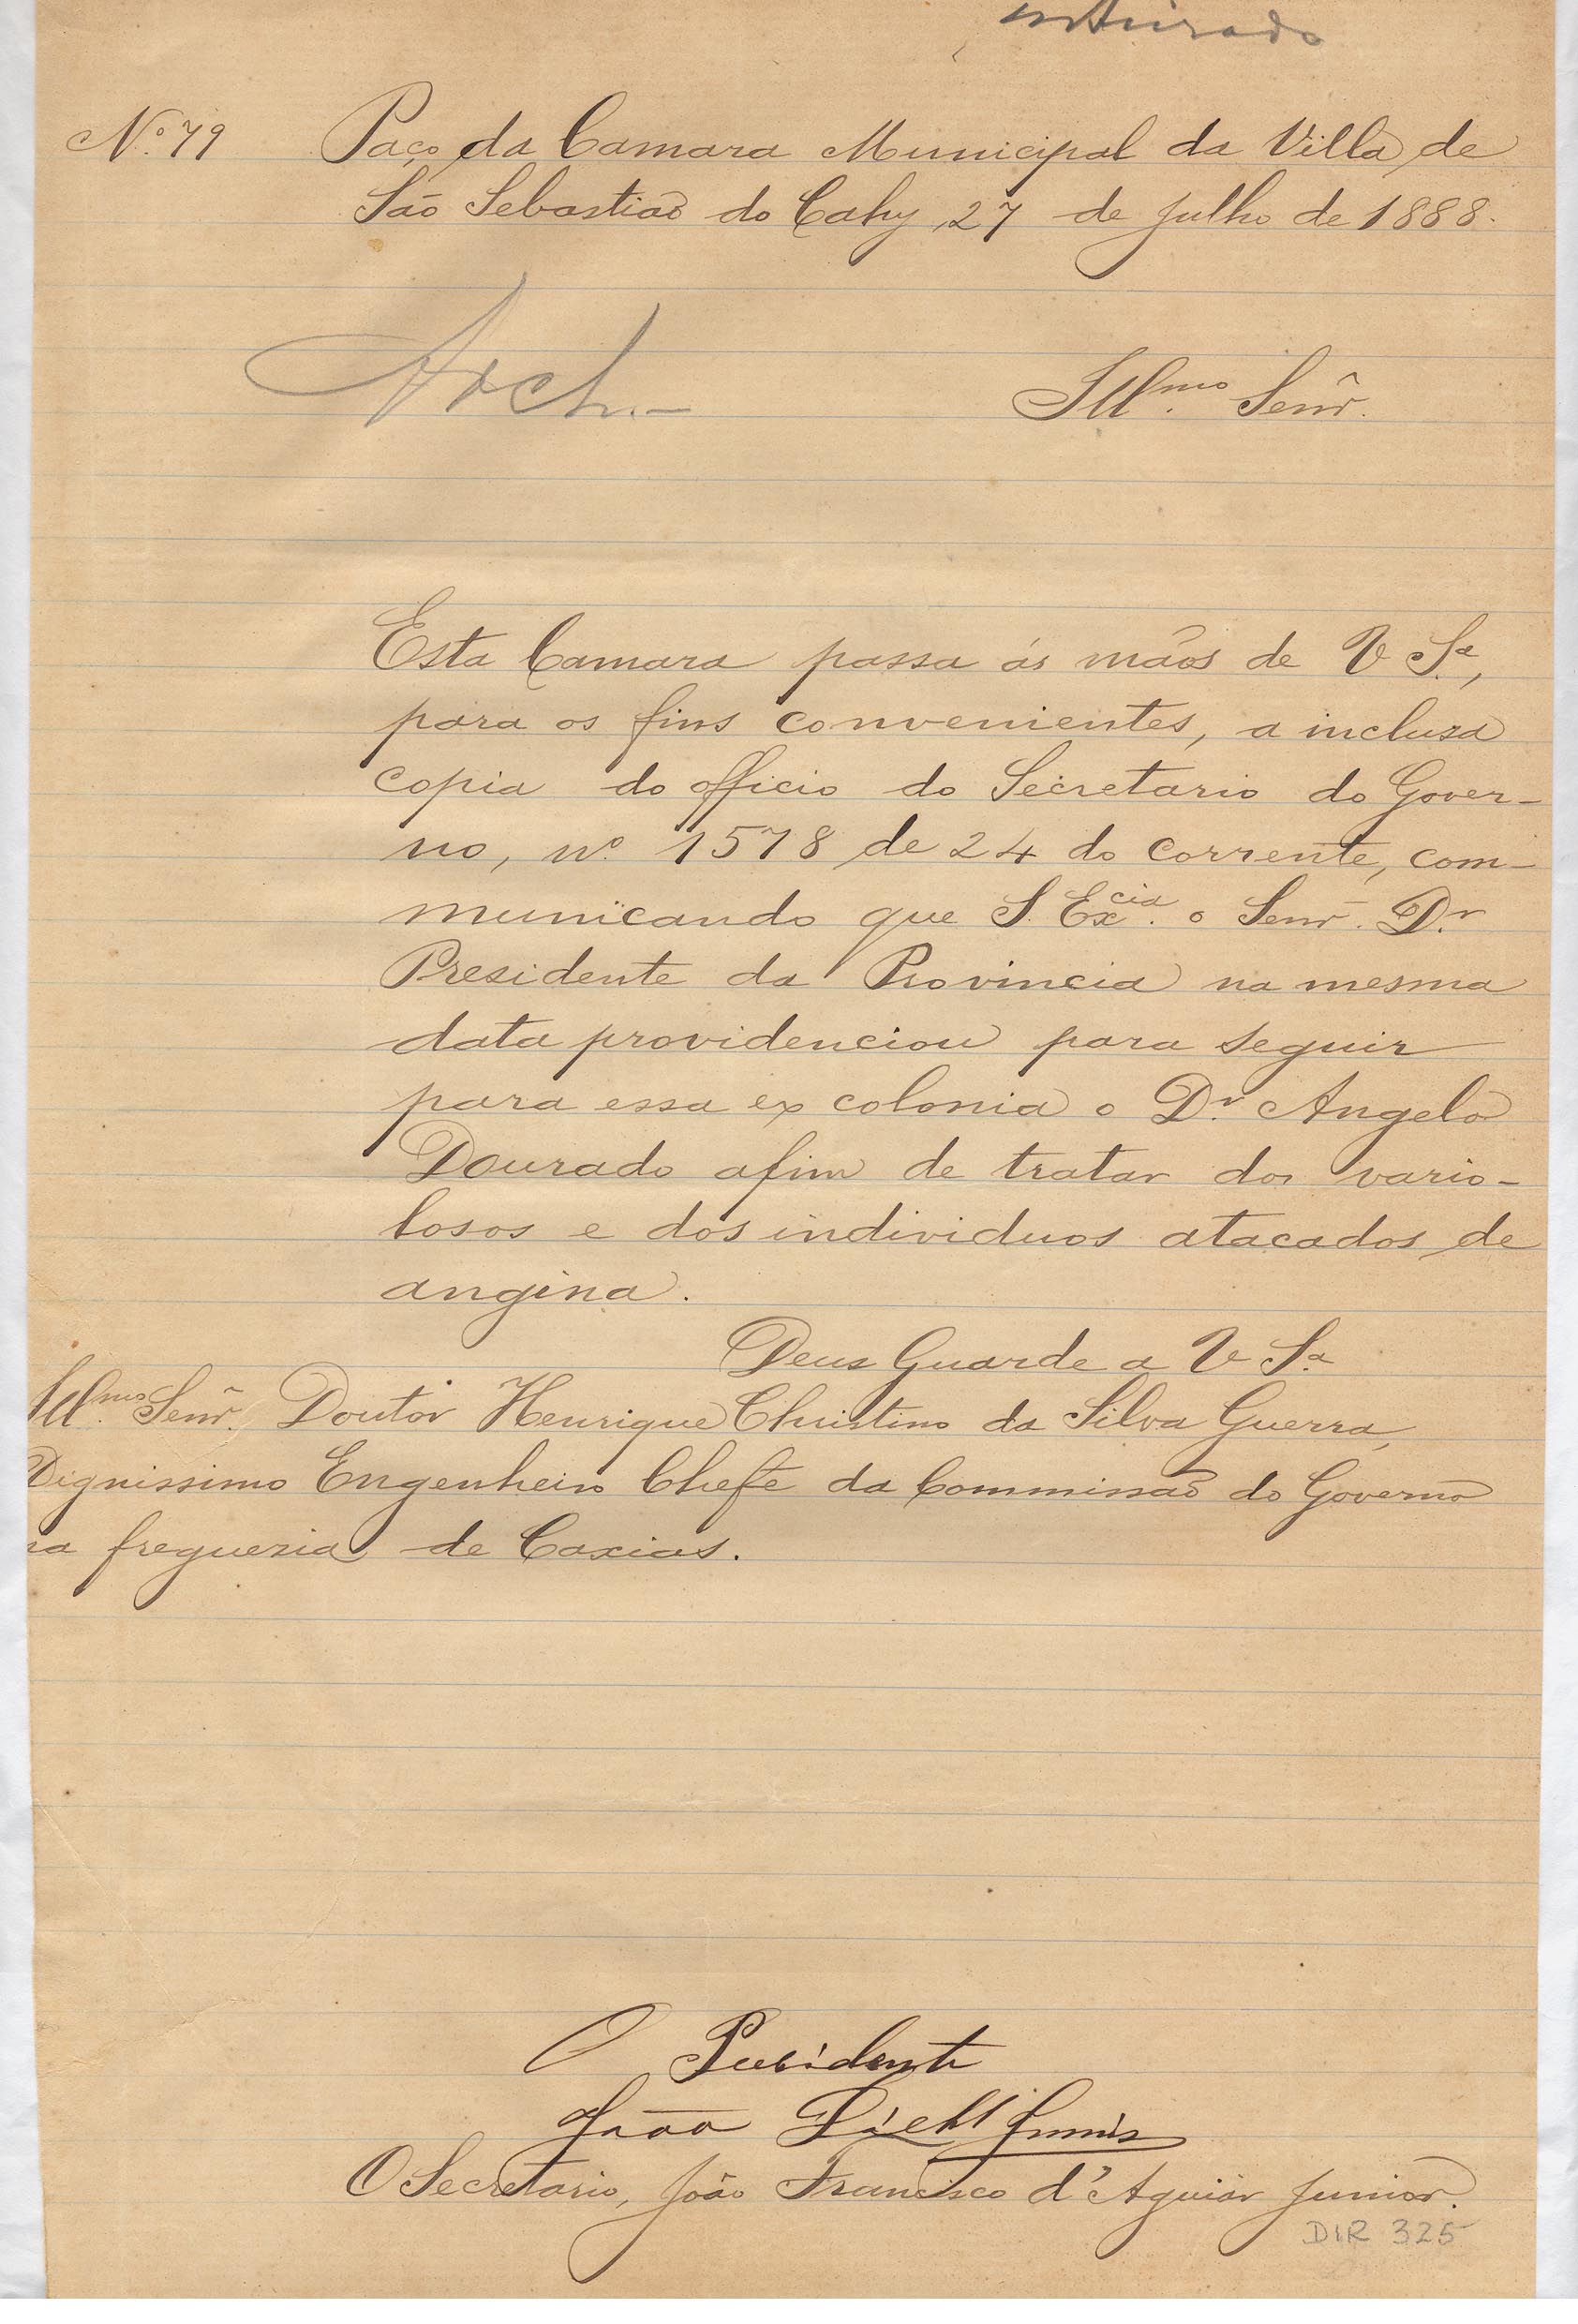 Nº 79 Paço da Camara Municipal da Villa de
São Sebastião do Cahy, 27 de Julho de 1888.
Arch.
Illmo. Senr.
Esta Camara passa ás mãos de V Sa.,
para os fins convenientes, a inclusa
copia do officio do Secretario do Gover-
no, nº 1578 de 24 do corrente, com-
municando que S. Excia. o Senr. Dr.
Presidente da Provincia na mesma
data providenciou para seguir
para essa ex colonia o Dr. Angelo
Dourado afim de tratar dos vario-
losos e dos individuos atacados de
angina.
Deus Guarde a V Sa.
Illmo. Senr. Doutor Henrique Christino da Silva Guerra,
Dignissimo Engenheiro Chefe da Commissão do Governo
na freguezia de Caxias.
O Presidente
João
O Secretario, João Francisco d'Aguiar Junior.
DIR 325